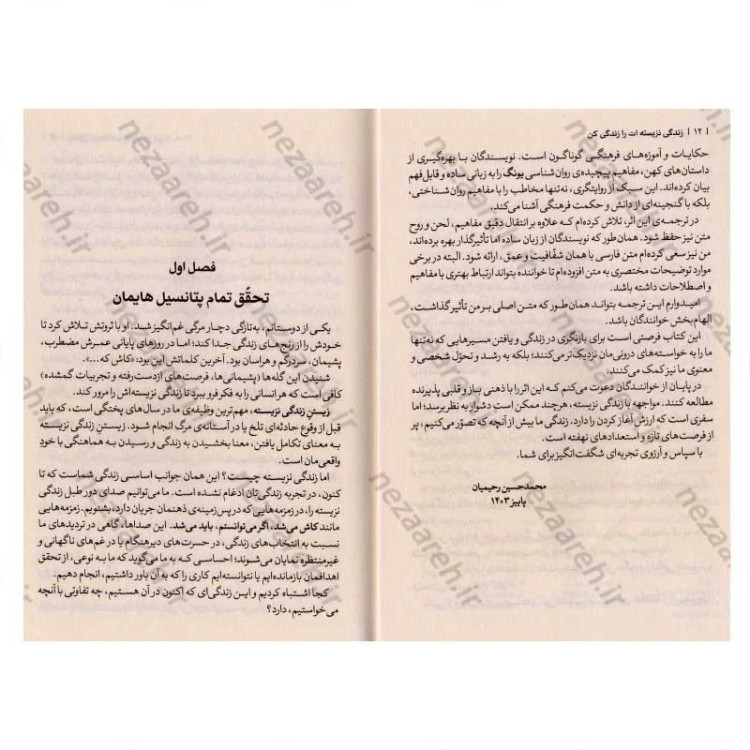 | ۱۲ | زندگی نزیسته ات را زندگی کن
حکایات و آموزه‌های فرهنگی گوناگون است. نویسندگان با بهره‌گیری از
داستان‌های کهن، مفاهیم پیچیده‌ی روان‌شناسی یونگ را به زبانی ساده و قابل فهم
بیان کرده‌اند. این سبک از روایتگری، نه‌تنها مخاطب را با مفاهیم روان‌شناختی،
بلکه با گنجینه‌ای از دانش و حکمت فرهنگی آشنا می‌کند.
در ترجمه‌ی این اثر، تلاش کرده‌ام که علاوه بر انتقال دقیق مفاهیم، لحن و روح
متن نیز حفظ شود. همان‌طور که نویسندگان از زبان ساده اما تأثیرگذار بهره برده‌اند،
من نیز سعی کرده‌ام متن فارسی با همان شفّافیت و عمق، ارائه شود. البته در برخی
موارد توضیحات مختصری به متن افزوده‌ام تا خواننده بتواند ارتباط بهتری با مفاهیم
و اصطلاحات داشته باشد.
امیدوارم این ترجمه بتواند همان‌طور که متن اصلی بر من تأثیر گذاشت،
الهام‌بخش خوانندگان باشد.
این کتاب فرصتی است برای بازنگری در زندگی و یافتن مسیرهایی که نه‌تنها
ما را به خواسته‌های درونی‌مان نزدیک‌تر می‌کنند؛ بلکه به رشد و تحوّل شخصی و
معنوی ما نیز کمک می‌کنند.
در پایان از خوانندگان دعوت می‌کنم که این اثر را با ذهنی باز و قلبی پذیرنده
مطالعه کنند. مواجهه با زندگی نزیسته، هرچند ممکن است دشوار به نظر برسد؛ اما
سفری است که ارزش آغاز کردن را دارد. زندگی ما بیش از آنچه که تصوّر می‌کنیم، پر
از فرصت‌های تازه و استعدادهای نهفته است.
با سپاس و آرزوی تجربه‌ای شگفت‌انگیز برای شما.
محمدحسین رحیمیان
پاییز ۱۴۰۳
فصل اول
تحقّق تمام پتانسیل هایمان
یکی از دوستانم، به‌تازگی دچار مرگی غم‌انگیز شد. او با ثروتش تلاش کرد تا
خودش را از رنج‌های زندگی جدا کند؛ اما در روزهای پایانی عمرش مضطرب،
پشیمان، سردرگم و هراسان بود. آخرین کلماتش این بود: «کاش که ...».
شنیدن این گله‌ها (پشیمانی‌ها، فرصت‌های ازدست‌رفته و تجربیات گمشده)
کافی است که هر انسانی را به فکر فرو ببرد تا زندگی نزیسته‌اش را مرور کند.
زیستنِ زندگی نزیسته، مهم‌ترین وظیفه‌ی ما در سال‌های پختگی است، که باید
قبل از وقوع حادثه‌ای تلخ یا در آستانه‌ی مرگ انجام شود. زیستنِ زندگی نزیسته
به معنای تکامل یافتن، معنا بخشیدن به زندگی و رسیدن به هماهنگی با خود
واقعی‌مان است.
اما زندگی نزیسته چیست؟ این همان جوانب اساسی زندگی شماست که تا
کنون، در تجربه زندگی‌تان ادغام نشده است. ما می‌توانیم صدای دور طبل زندگی
نزیسته را، در زمزمه‌هایی که در پس‌زمینه‌ی ذهنمان جریان دارد، بشنویم. زمزمه‌هایی
مانند کاش می‌شد، اگر می‌توانستم، باید می‌شد. این صداها، گاهی در تردیدهای ما
نسبت به انتخاب‌های زندگی، در حسرت‌های دیرهنگام یا در غم‌های ناگهانی و
غیرمنتظره نمایان می‌شوند؛ احساسی که به ما می‌گوید که ما به نوعی، از تحقق
اهدافمان بازمانده‌ایم یا نتوانسته‌ایم کاری را که به آن باور داشتیم، انجام دهیم.
کجا اشتباه کردیم و این زندگی‌ای که اکنون در آن هستیم، چه تفاوتی با آنچه
می‌خواستیم، دارد؟
nezaareh.ir
nezaareh.ir
nezaareh.ir
nezaareh.ir